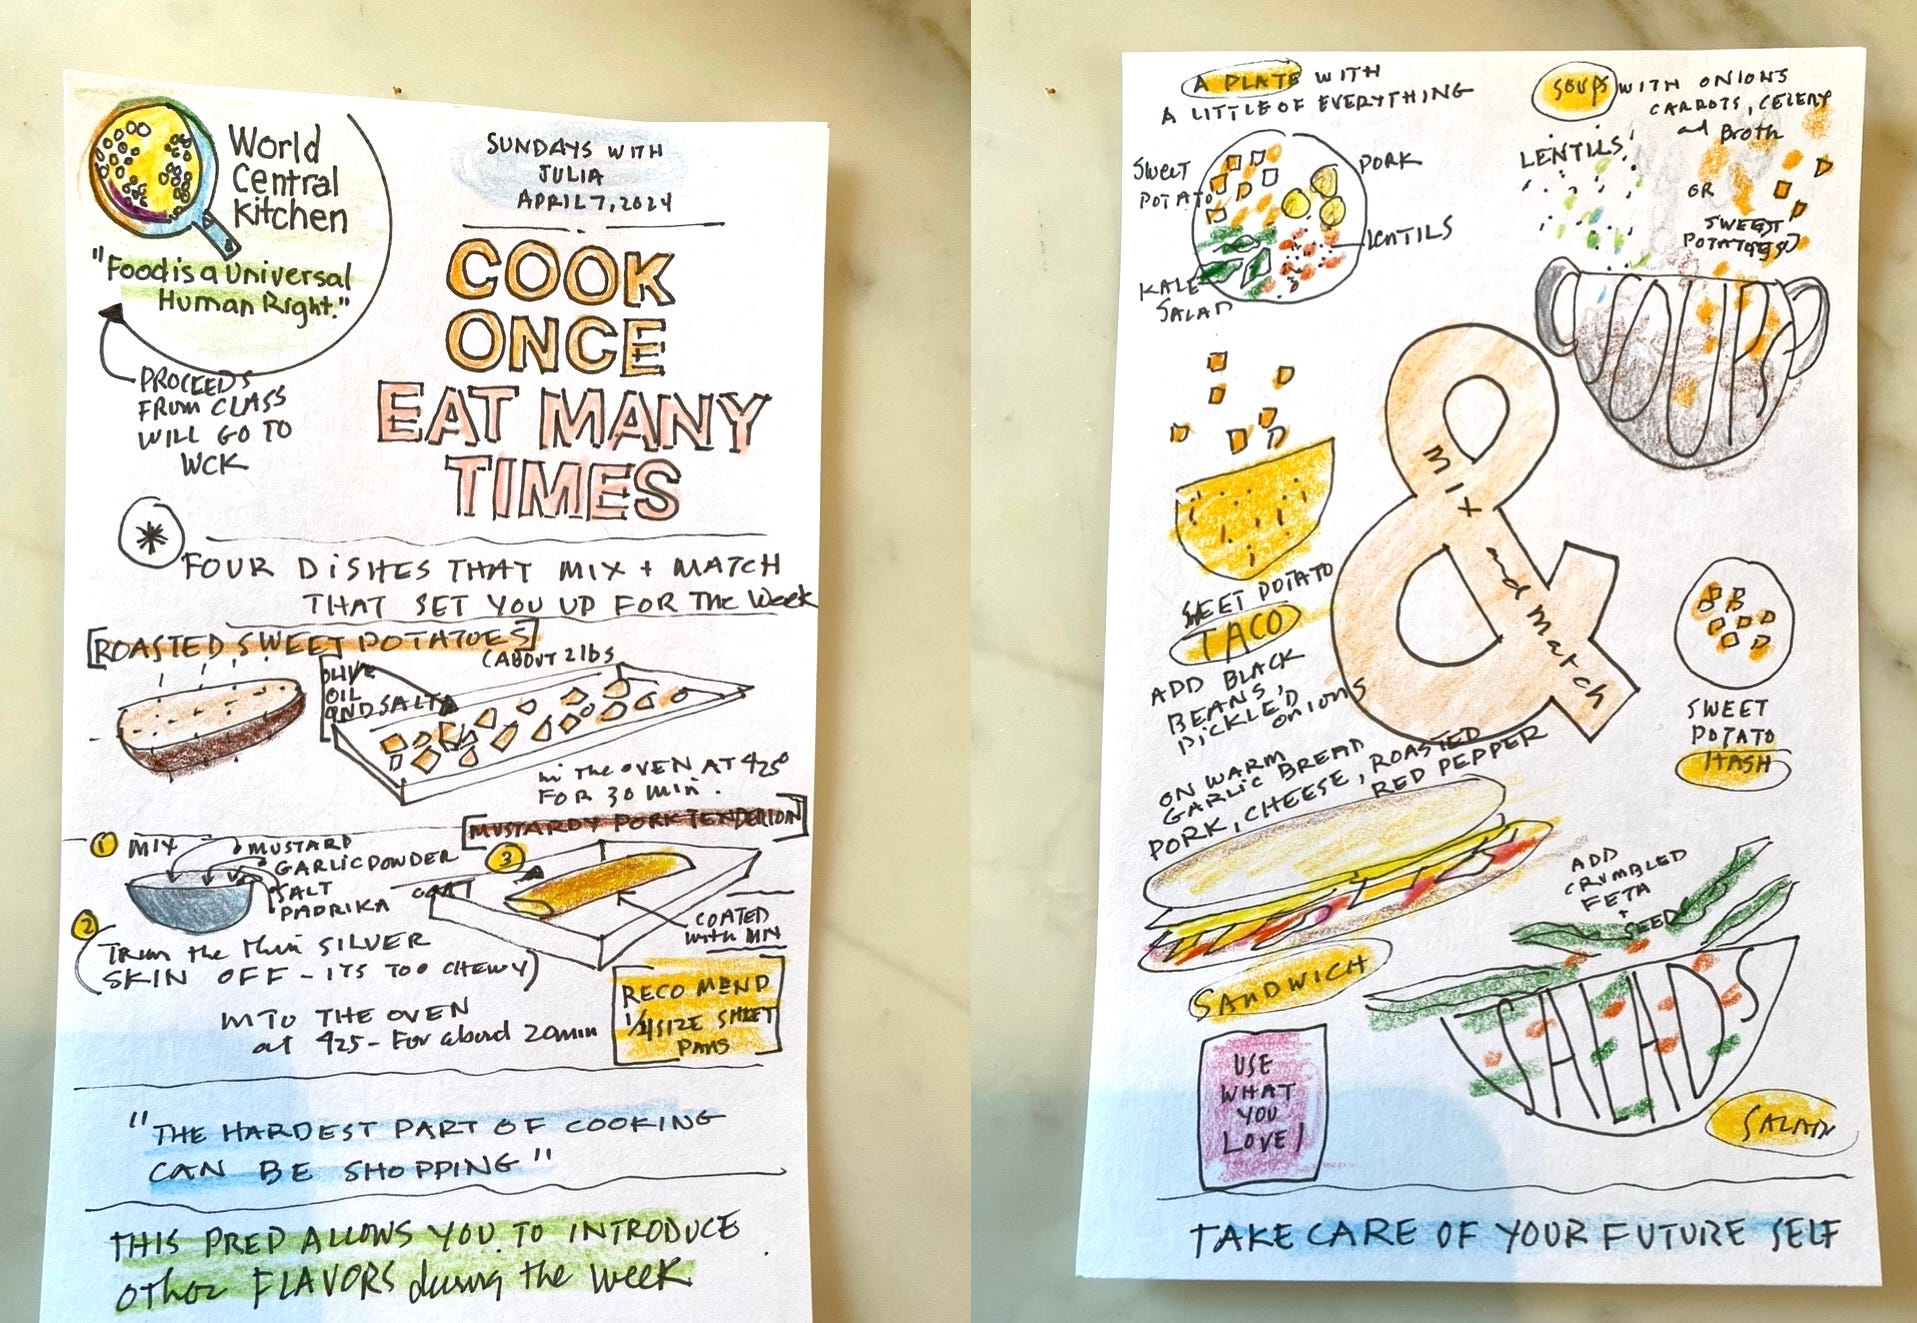 World
Central
Kitchen
"Food is a Universal
Human Right."
PROCEEDS
FROM CLASS
WILL GO TO
WCK
SUNDAYS WITH
JULIA
APRIL 7, 2024
COOK
ONCE
EAT MANY
TIMES
*
FOUR DISHES THAT MIX + MATCH
THAT SET YOU UP FOR The Week
[ROASTED SWEET POTATOES]
(ABOUT 2 lbs
OLIVE
OIL
AND SALT
in The OVEN AT 425°
FOR 30 min.
[MUSTARDY PORK TENDERLOIN]
1 MIX
MUSTARD
GARLIC POWDER
SALT
PAPRIKA
2
(Trim the thin SILVER
SKIN OFF - ITS TOO CHEWY)
3
COAT
COATED
with MIX
INTO THE OVEN
at 425 - For about 20 min
RECOMEND
1/4 SIZE SHEET
PANS
"THE HARDEST PART OF COOKING
CAN BE SHOPPING"
THIS PREP ALLOWS YOU TO INTRODUCE
other FLAVORS during the week
A PLATE WITH
A LITTLE OF EVERYTHING
SWEET
POTATO
PORK
LENTILS
KALE
SALAD
SOUPS WITH ONIONS
CARROTS, CELERY
and Broth
LENTILS
OR
SWEET
POTATOES
SOUPS
Mix
and Match
SWEET POTATO
TACO
ADD BLACK
BEANS,
PICKLE'D
onions
SWEET
POTATO
HASH
ON WARM
GARLIC BREAD
PORK, CHEESE, ROASTED
RED PEPPER
SANDWICH
ADD
CRUMBLED
FETA
+
SEEDS
SALADS
SALAD
USE
WHAT
YOU
LOVE!
TAKE CARE OF YOUR FUTURE SELF